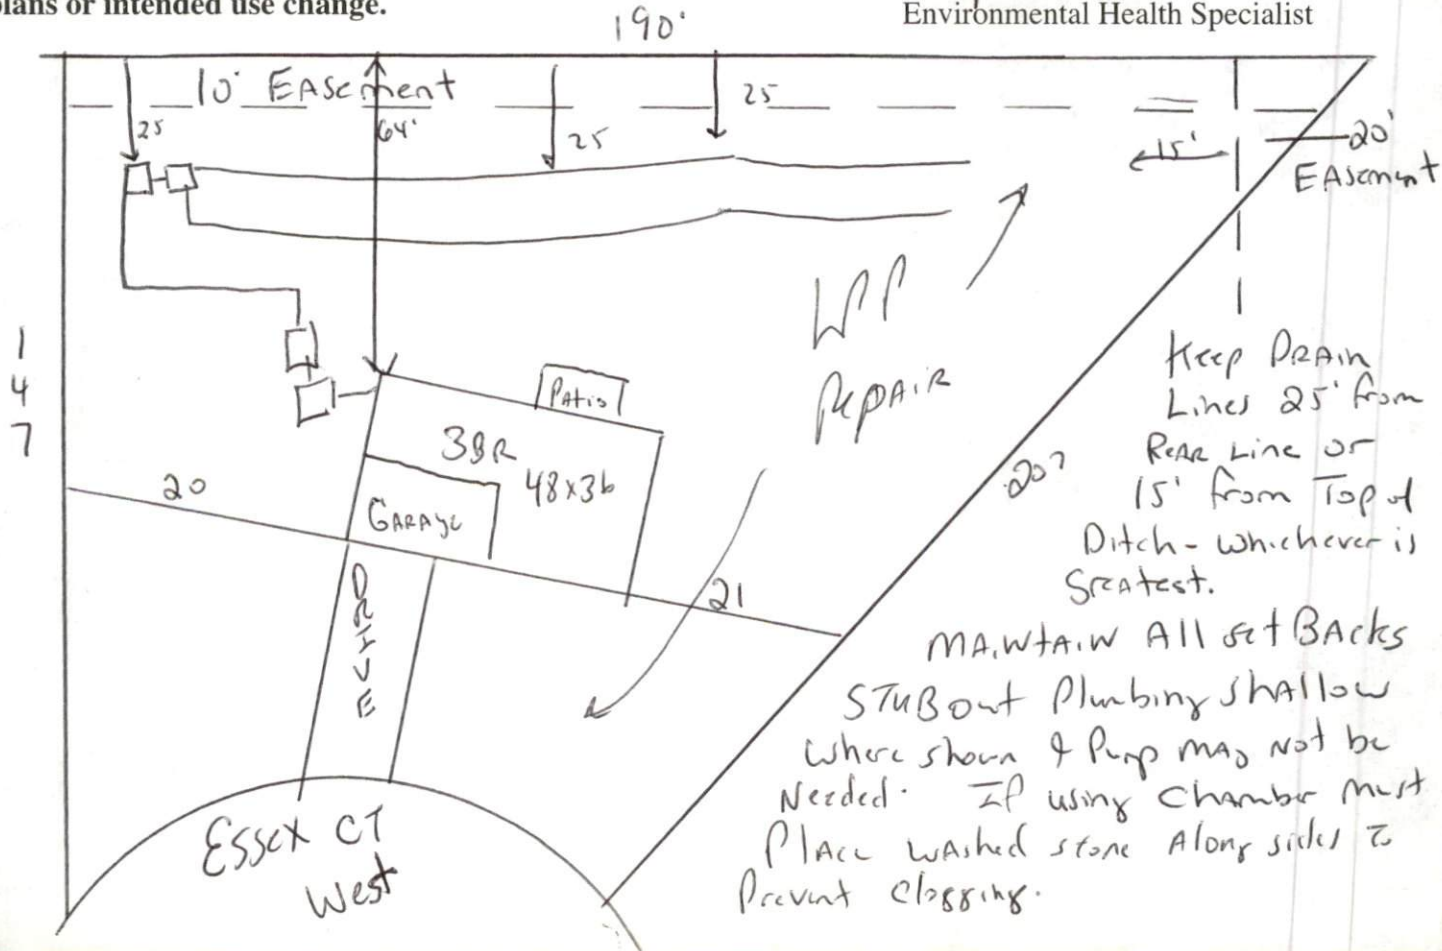 plans or intended use change.
Environmental Health Specialist
190'
10' EASEment
25
64'
25
25
15'
20'
EASement
LPP
REpAiR
PAtio
3BR
48x36
GARAge
20
21
207
147
DRIVE
ESSEX CT
West
Keep DRAin
Lines 25' from
REAR Line or
15' from Top of
Ditch - whichever is
GreAtest.
MAiNtAiN All setBAcks
STUB out Plumbing shAllow
where shown & Pump mAy Not be
Needed. If using chamber must
PlAce wAshed stone Along sides to
Prevent clogging.